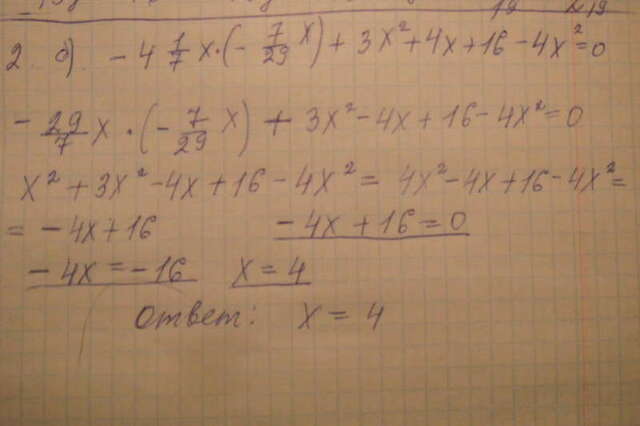 2. б). - 4 1/7 x·(- 7/29 x) + 3x² + 4x + 16 - 4x² = 0
- 29/7 x · (- 7/29 x) + 3x² - 4x + 16 - 4x² = 0
x² + 3x² - 4x + 16 - 4x² = 4x² - 4x + 16 - 4x² =
= - 4x + 16 - 4x + 16 = 0
- 4x = - 16 x = 4
Ответ: x = 4